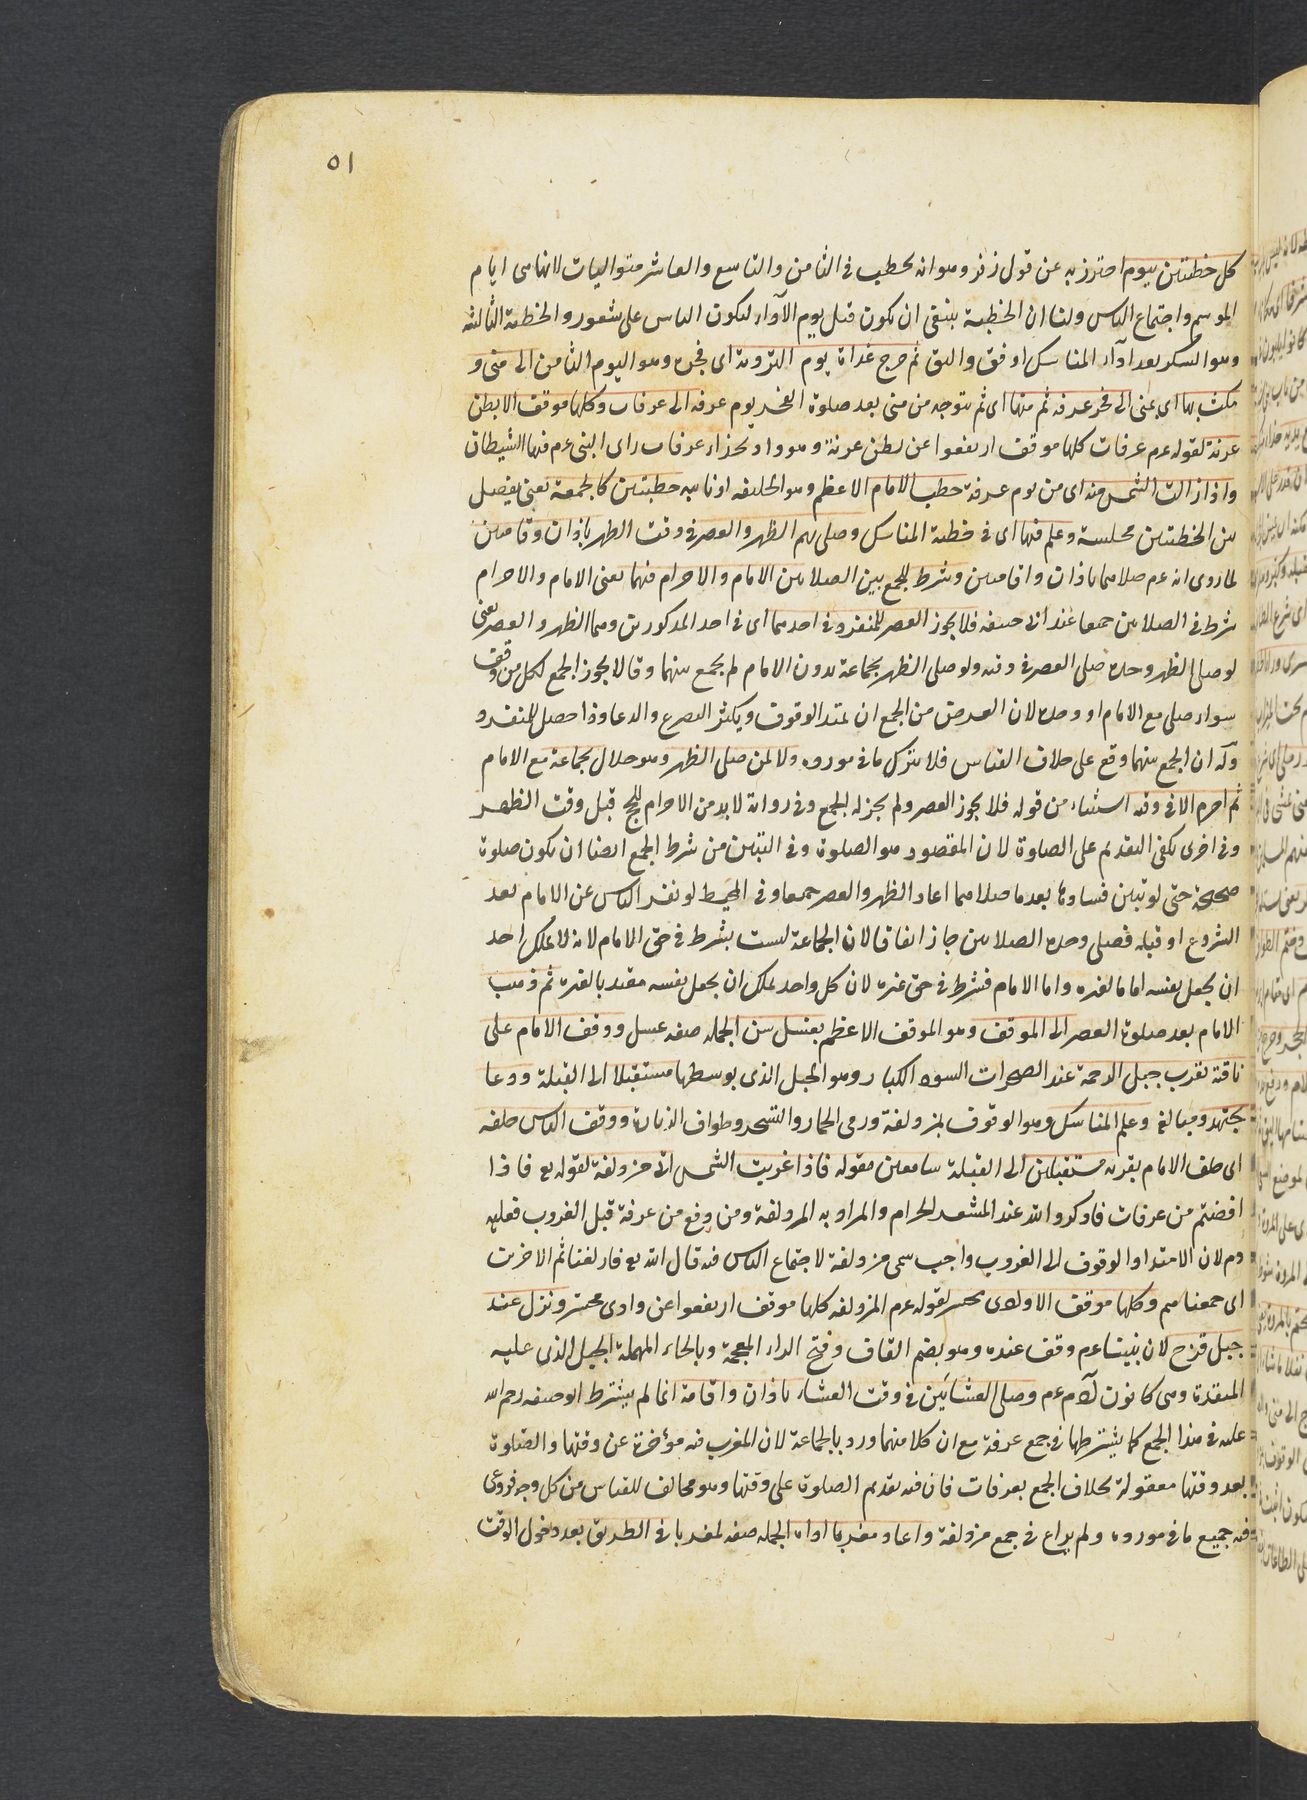 ٥١
كل خطبتين بيوم احترز به عن قول زفر وهو انه يخطب في الثامن والتاسع والعاشر متواليات لانها من ايام
الموسم واجتماع الناس ولنا ان الخطبة ينبغي ان يكون قبل يوم الاداء ليكون الناس على شعور والخطبة الثالثة
وهو الشكر بعد اداء المناسك اوفق واليق ثم خرج غداة يوم التروية اى فجره وهو اليوم الثامن الى منى و
مكث بها اى بمنى الى فجر عرفة ثم منها اى ثم يتوجه من منى بعد صلوة الفجر يوم عرفة الى عرفات وكلها موقف الا بطن
عرنة لقوله عم عرفات كلها موقف ارتفعوا عن بطن عرنة وهو واد بحذاء عرفات راى النبى عم فيها الشيطان
واذا زالت الشمس منه اى من يوم عرفة خطب الامام الاعظم وهو الخليفة او نائبه خطبتين كالجمعة يعنى يفصل
بين الخطبتين بجلسة وعلم فيها اى في خطبة المناسك وصلى بهم الظهر والعصر في وقت الظهر باذان وقامتين
لما روى انه عم صلاهما باذان واقامتين وشرط للجمع بين الصلاتين الامام والاحرام فيهما يعنى الامام والاحرام
شرط في الصلاتين جميعا عند ابى حنيفة فلا يجوز العصر للمنفرد في احدهما اى في احد المذكورين وهما الظهر والعصر يعنى
لو صلى الظهر وحده صلى العصر في وقته ولو صلى الظهر بجماعة بدون الامام لم يجمع بينهما وقالا يجوز الجمع لكل من وقف
سواء صلى مع الامام او وحده لان الغرض من الجمع ان يمتد الوقوف ويكثر التضرع والدعا وذا حصل للمنفرد
وله ان الجمع بينهما وقع على خلاف القياس فلا يترك ما في مورده ولا لمن صلى الظهر وهو حلال بجماعة مع الامام
ثم احرم الا في وقته استثناء من قوله فلا يجوز العصر ولم يجز له الجمع وفي رواية لابد من الاحرام للحج قبل وقت الظهر
وفي اخرى يكفى التقديم على الصلوة لان المقصود هو الصلوة وفي التبيين من شرط الجمع ايضا ان يكون صلوة
صحيحة حتى لو تبين فسادها بعد ما صلاهما اعاد الظهر والعصر جميعا وفي المحيط لو نفر الناس عن الامام بعد
الشروع او قبله فصلى وحده الصلاتين جاز اتفاقا لان الجماعة ليست بشرط في حق الامام لانه لا يملك احد
ان يجعل نفسه اماما لغيره واما الامام فشرط في حق غيره لان كل واحد يملك ان يجعل نفسه مقتديا لغيره ثم ذهب
الامام بعد صلوة العصر الى الموقف وهو الموقف الاعظم بغسل سن الجملة صفة غسل ووقف الامام على
ناقة بقرب جبل الرحمة عند الصخرات السود الكبار وهو الجبل الذى بوسطها مستقبلا الى القبلة ودعا
بجهد ومبالغة وعلم المناسك وهو الوقوف بمزدلفة ورمى الجمار والنحر وطواف الزيارة ووقف الناس خلفه
اى خلف الامام بقربه مستقبلين الى القبلة سامعين مقوله فاذا غربت الشمس اتى مزدلفة لقوله تع فاذا
افضتم من عرفات فاذكروا الله عند المشعر الحرام والمراد به المزدلفة ومن دفع من عرفة قبل الغروب فعليه
دم لان الامتداد الوقوف الى الغروب واجب سمى مزدلفة لاجتماع الناس فيه قال الله تع وازلفنا ثم الاخرين
اى جمعناهم وكلها موقف الا وادى محسر لقوله عم المزدلفة كلها موقف ارتفعوا عن وادى محسر ونزل عند
جبل قزح لان نبينا عم وقف عنده وهو بضم القاف وفتح الزاء المعجمة وبالحاء المهملة الجبل الذى عليه
الميقدة وهى كانون لآدم عم وصلى العشائين في وقت العشاء باذان واقامة انما لم يشترط ابو حنيفة رحم الله
عليه في هذا الجمع كما يشترطها في جمع عرفة مع ان كلا منهما ورد بالجماعة لان المغرب فيه مؤخرة عن وقتها والصلوة
بعد وقتها معقولة بخلاف الجمع بعرفات فان فيه تقديم الصلوة على وقتها وهو مخالف للقياس من كل وجه فروعى
فيه جميع ما في مورده ولم يراع في جمع مزدلفة واعاد مغربا اداه الجملة صفة لمغربا في الطريق بعد دخول الوقت